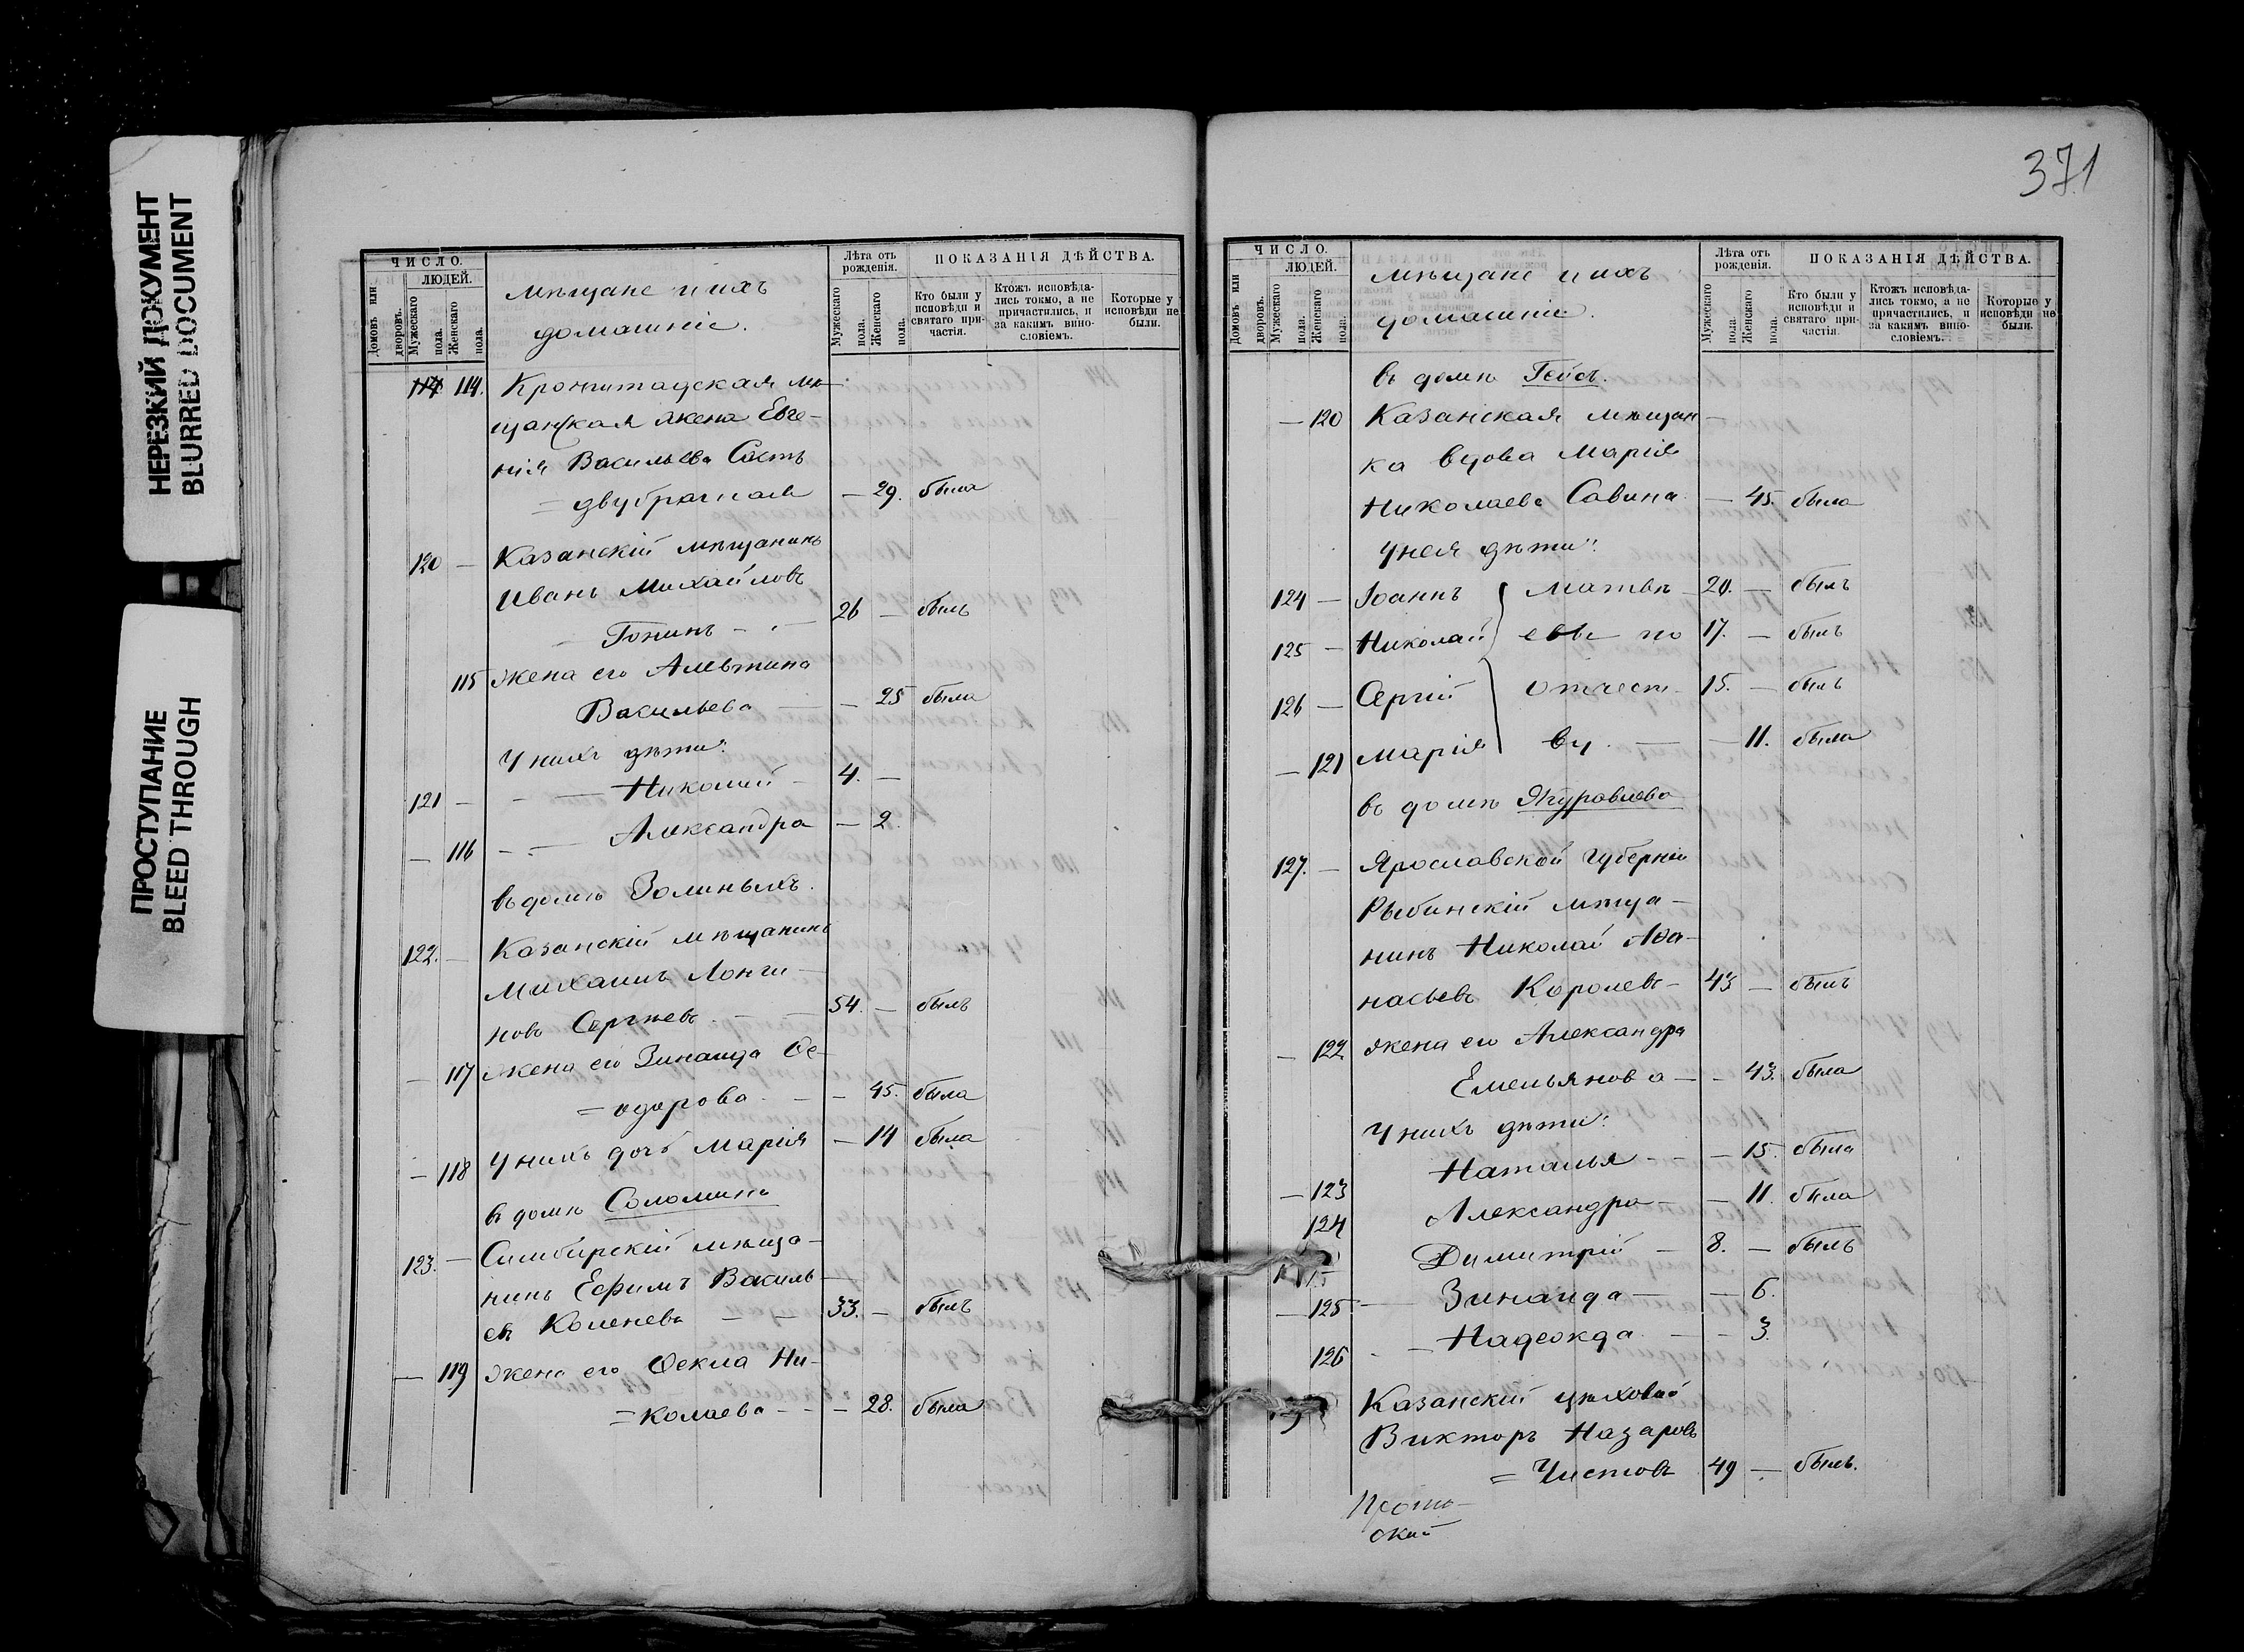 НЕРЕЗКИЙ ДОКУМЕНТ
BLURRED DOCUMENT
ПРОСТУПАНИЕ
BLEED THROUGH
ЧИСЛО.
ЛЮДЕЙ.
Домовъ или дворовъ.
Мужескаго пола.
Женскаго пола.
Мѣщане и ихъ
домашніе.
Лѣта отъ рожденія.
Мужескаго пола.
Женскаго пола.
ПОКАЗАНІЯ ДѢЙСТВА.
Кто были у исповѣди и святаго при-частія.
Ктожъ исповѣда-лись токмо, а не причастились, и за какимъ вино-словіемъ.
Которые у исповѣди не были.
114 114. Кронштадская мѣ-
щанская жена Евге-
нія Васильева
— 29. была
120 — Казанскій мѣщанинъ
Иванъ Михайловъ
Гонинъ — 26 — былъ
115 жена его Алевтина
Васильева — — 25 была
У нихъ дѣти:
121 — Николай — 4. —
— 116 Александра — 2.
въ домѣ Золиныхъ.
122. — Казанскій мѣщанинъ
Михаилъ Лонги-
новъ Сергѣевъ 54. — былъ
— 117 жена его Зинаида Ѳе-
= одорова — — 45. была
— 118 У нихъ дочь Марія — 14 была
въ домѣ Соломина
123. — Симбирскій мѣща-
нинъ Ефимъ Василь-
евъ Коленевъ — — 33. — былъ
— 119 жена его Ѳекла Ни-
= колаева — — 28. была
371
ЧИСЛО.
ЛЮДЕЙ.
Домовъ или дворовъ.
Мужескаго пола.
Женскаго пола.
Мѣщане и ихъ
домашніе.
Лѣта отъ рожденія.
Мужескаго пола.
Женскаго пола.
ПОКАЗАНІЯ ДѢЙСТВА.
Кто были у исповѣди и святаго при-частія.
Ктожъ исповѣда-лись токмо, а не причастились, и за какимъ вино-словіемъ.
Которые у исповѣди не были.
въ домѣ Гейсъ.
— 120 Казанская мѣщан-
ка вдова Марія
Николаева Савина — 45. была
У нея дѣти:
124 — Іоаннъ Матвѣ- 20. — былъ
125 — Николай евы по 17. — былъ
126 — Сергій отчест- 15. — былъ
— 121 Марія ву. — — 11. была
въ домѣ Журавлева
127. — Ярославской губерніи
Рыбинскій мѣща-
нинъ Николай Аѳа-
насьевъ Королевъ — 43 — былъ
— 122 жена его Александра
Емельянова — — 43. была
У нихъ дѣти:
— 123 Наталья — — 15. была
124 Александра — — 11. была
Димитрій — 8. — былъ
— 125 — Зинаида — — 6.
126 — Надежда — — 3.
Казанскій цѣховой
Викторъ Назаровъ
= Чистовъ 49 — былъ.